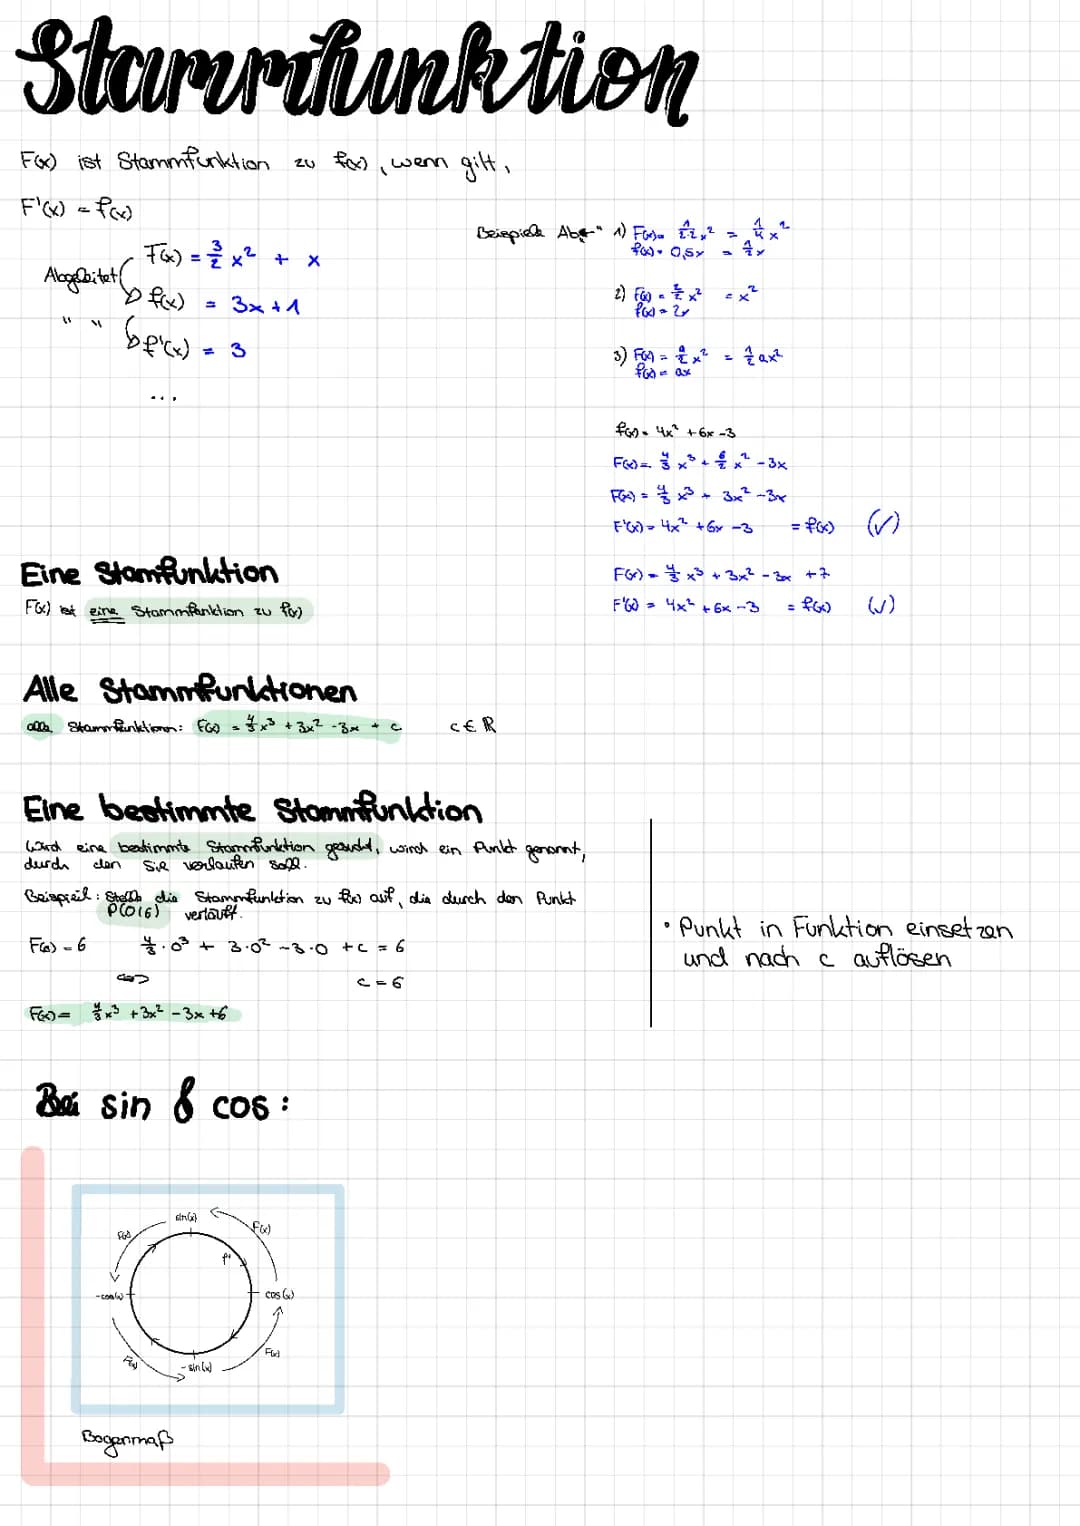 Stammfunktion
F(x) ist Stammfunktion zu f(x), wenn gilt,
F'(x) = f(x)
Abgeleitet
F(x) = 3/2 x² + x
f(x) = 3x + 1
" "
f'(x) = 3
...
Beispiele
1) F(x) = 1/2·2 x² = 1/4 x²
f(x) = 0,5x = 1/2 x
2) F(x) = 2/2 x² = x²
f(x) = 2x
3) F(x) = a/2 x² = 1/2 ax²
f(x) = ax
f(x) = 4x² + 6x - 3
F(x) = 4/3 x³ + 6/2 x² - 3x
F(x) = 4/3 x³ + 3x² - 3x
F'(x) = 4x² + 6x - 3 = f(x) (✓)
F(x) = 4/3 x³ + 3x² - 3x + 7
F'(x) = 4x² + 6x - 3 = f(x) (✓)
Eine Stamfunktion
F(x) ist eine Stammfunktion zu f(x)
Alle Stammfunktionen
alle Stammfunktionen: F(x) = 4/3 x³ + 3x² - 3x + c c ∈ ℝ
Eine bestimmte Stammfunktion
Wird eine bestimmte Stammfunktion gesucht, wird ein Punkt genannt,
durch den sie verlaufen soll.
Beispiel: Stelle die Stammfunktion zu f(x) auf, die durch den Punkt
P(0|6) verläuft.
F(0) = 6 4/3 · 0³ + 3·0² - 3·0 + c = 6
⟺ c = 6
F(x) = 4/3 x³ + 3x² - 3x + 6
• Punkt in Funktion einsetzen
und nach c auflösen
Bei sin & cos:
sin(x)
F(x)
F(x)
f'
-cos(x)
cos(x)
F(x)
F(x)
-sin(x)
Bogenmaß